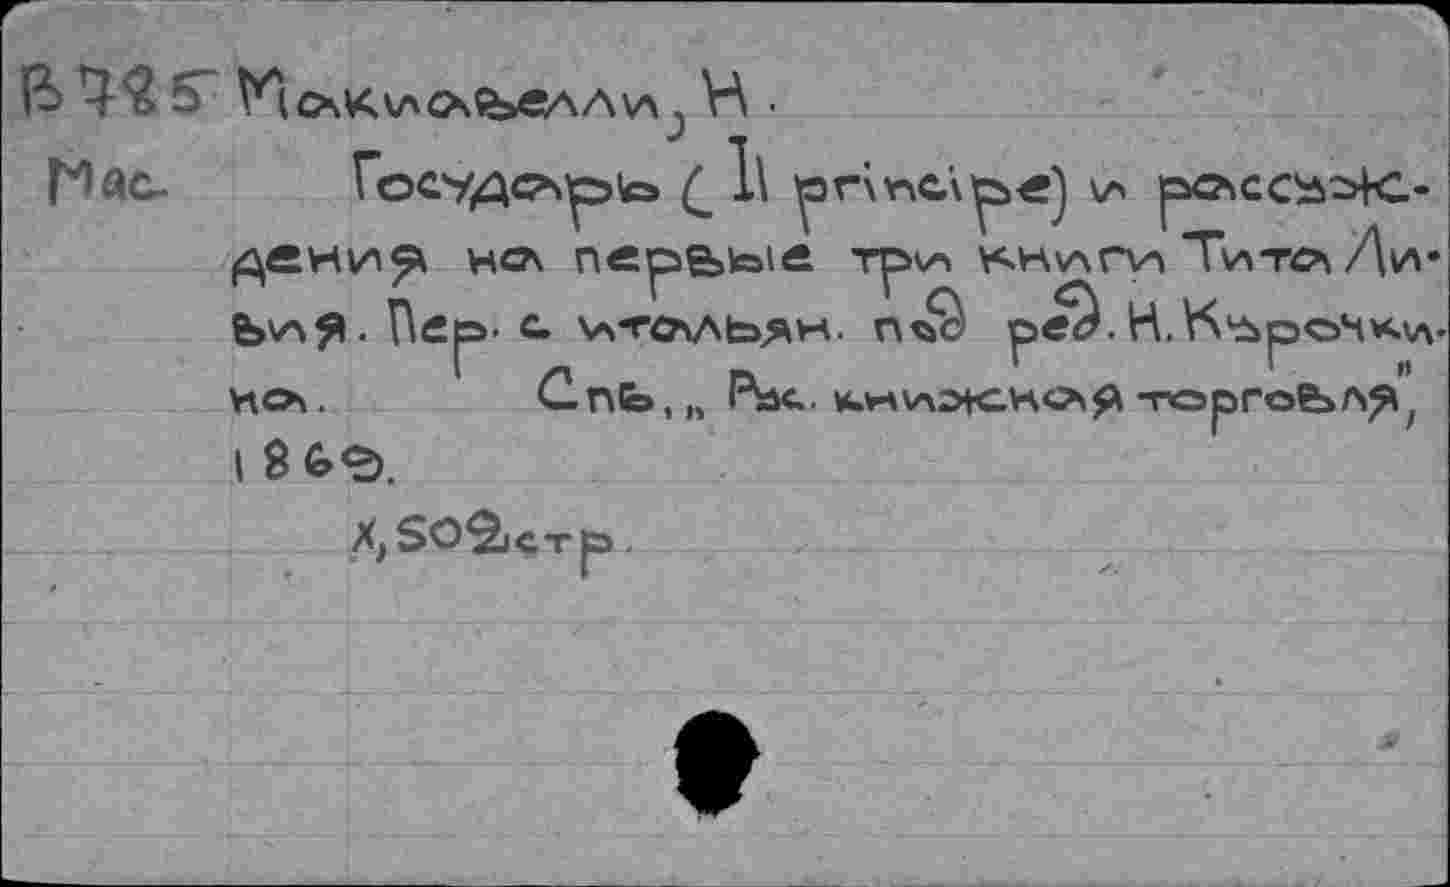 B785 Макиавелли, Н.
Mac. Государь (Il principe) и рассуж-
дения на первые три книги Тита Ли-
вия. Пер. с итальян. под ред. Н. Курочки-
на. Спб., „Рус. книжная торговля",
1869.
X, 502 стр.